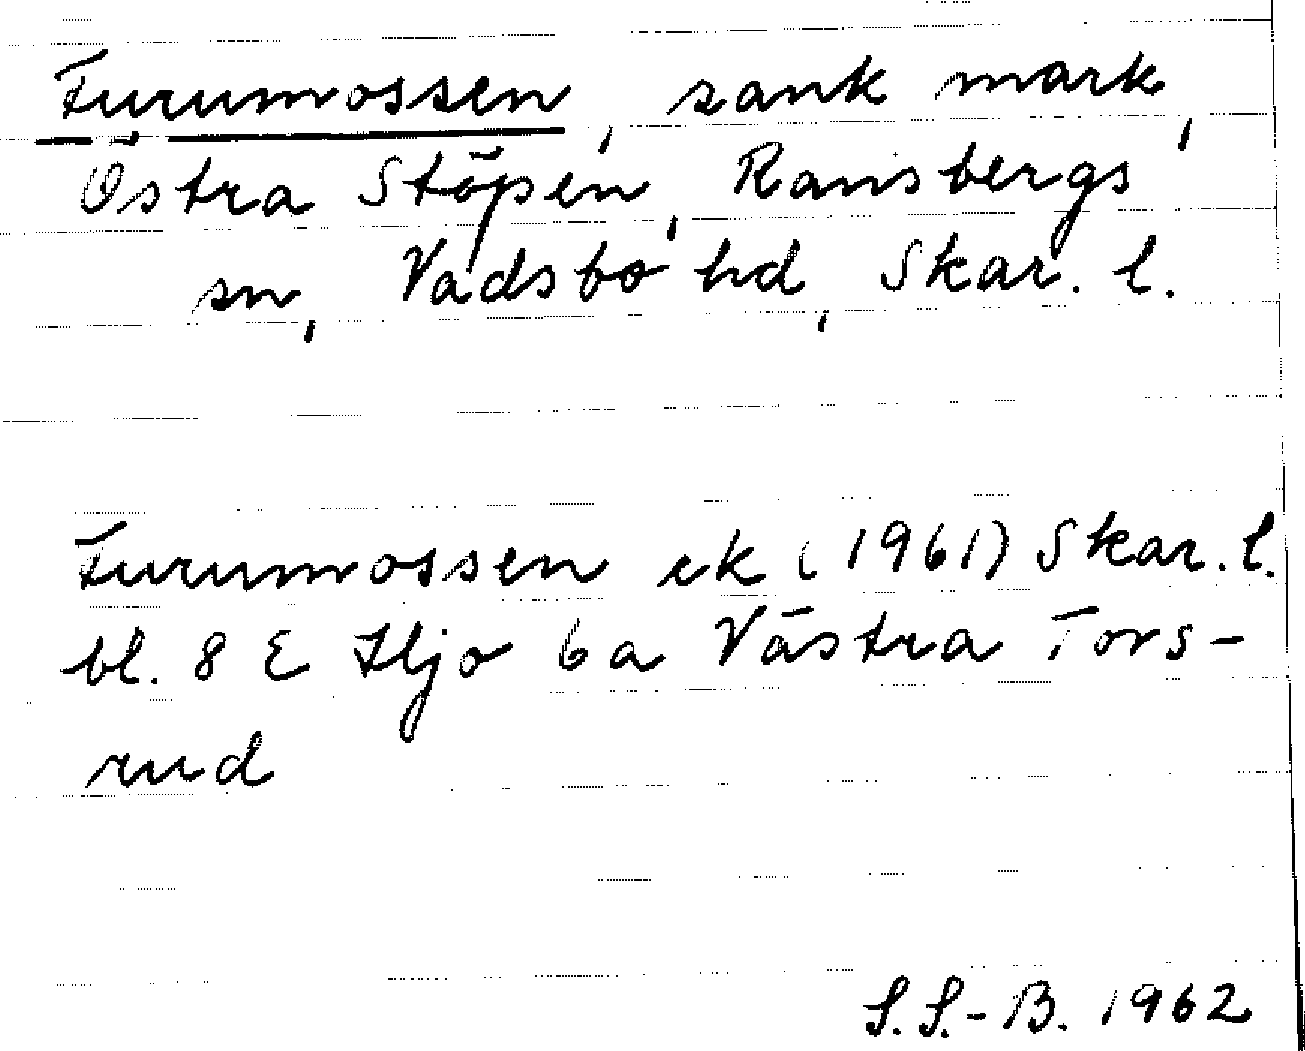 Furumossen, sank mark,
Östra Stöpen, Ransbergs
sn, Vadsbo hd, Skar. l.
Furumossen ek (1961) Skar. l.
bl. 8 E Hjo 6a Västra Tors-
rud
S. S.-B. 1962